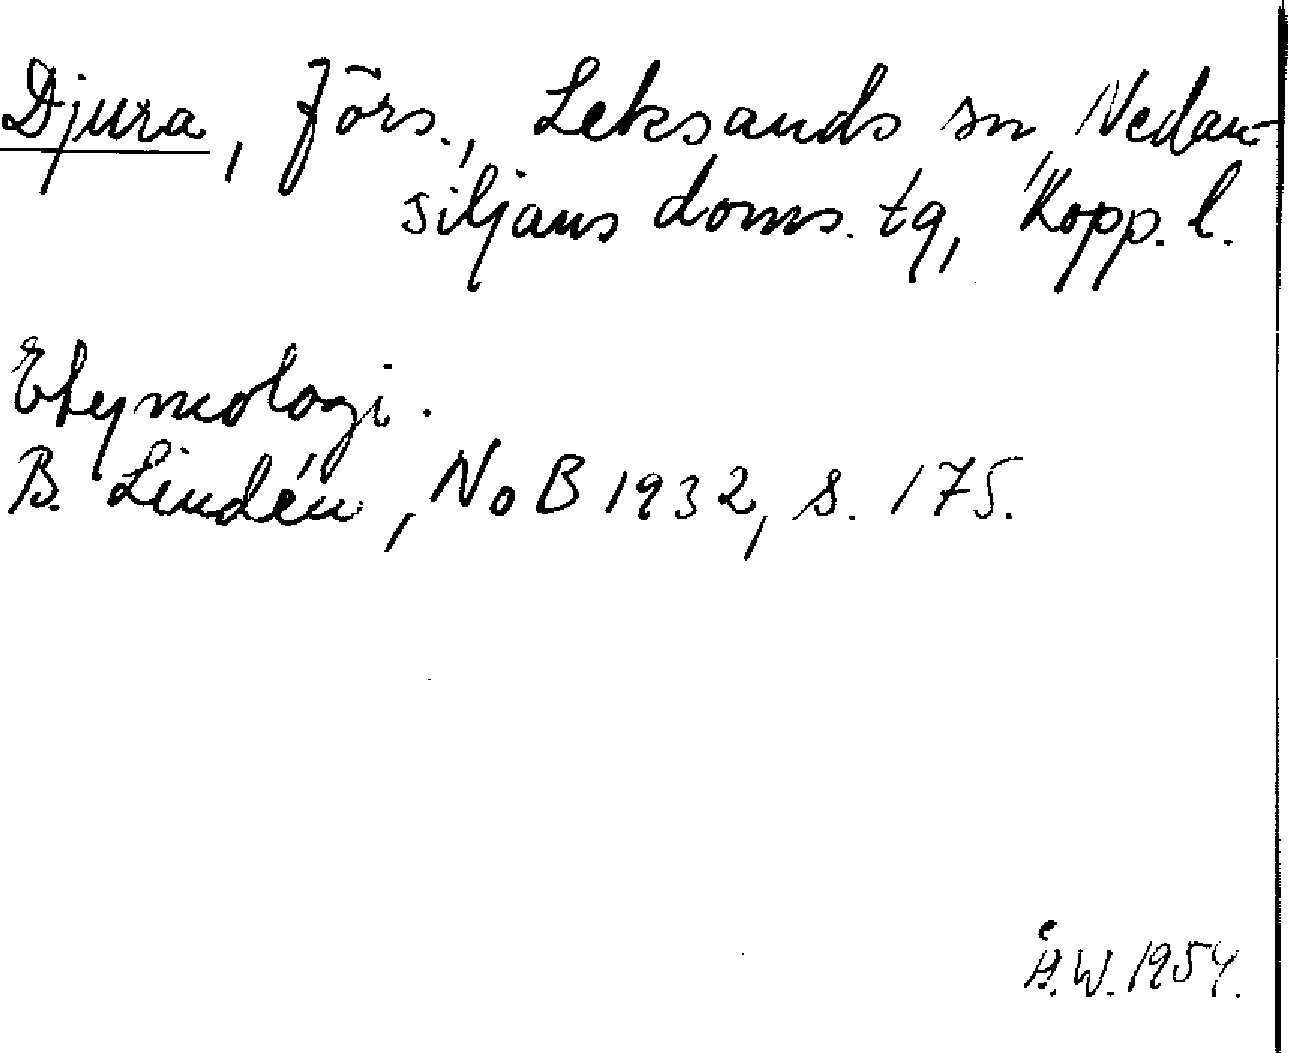 Djura, förs., Leksands sn, Nedan-
siljans doms. tg, Kopp. l.
Etymologi.
B. Lindén, NoB 1932, s. 175.
Å.W. 1954.